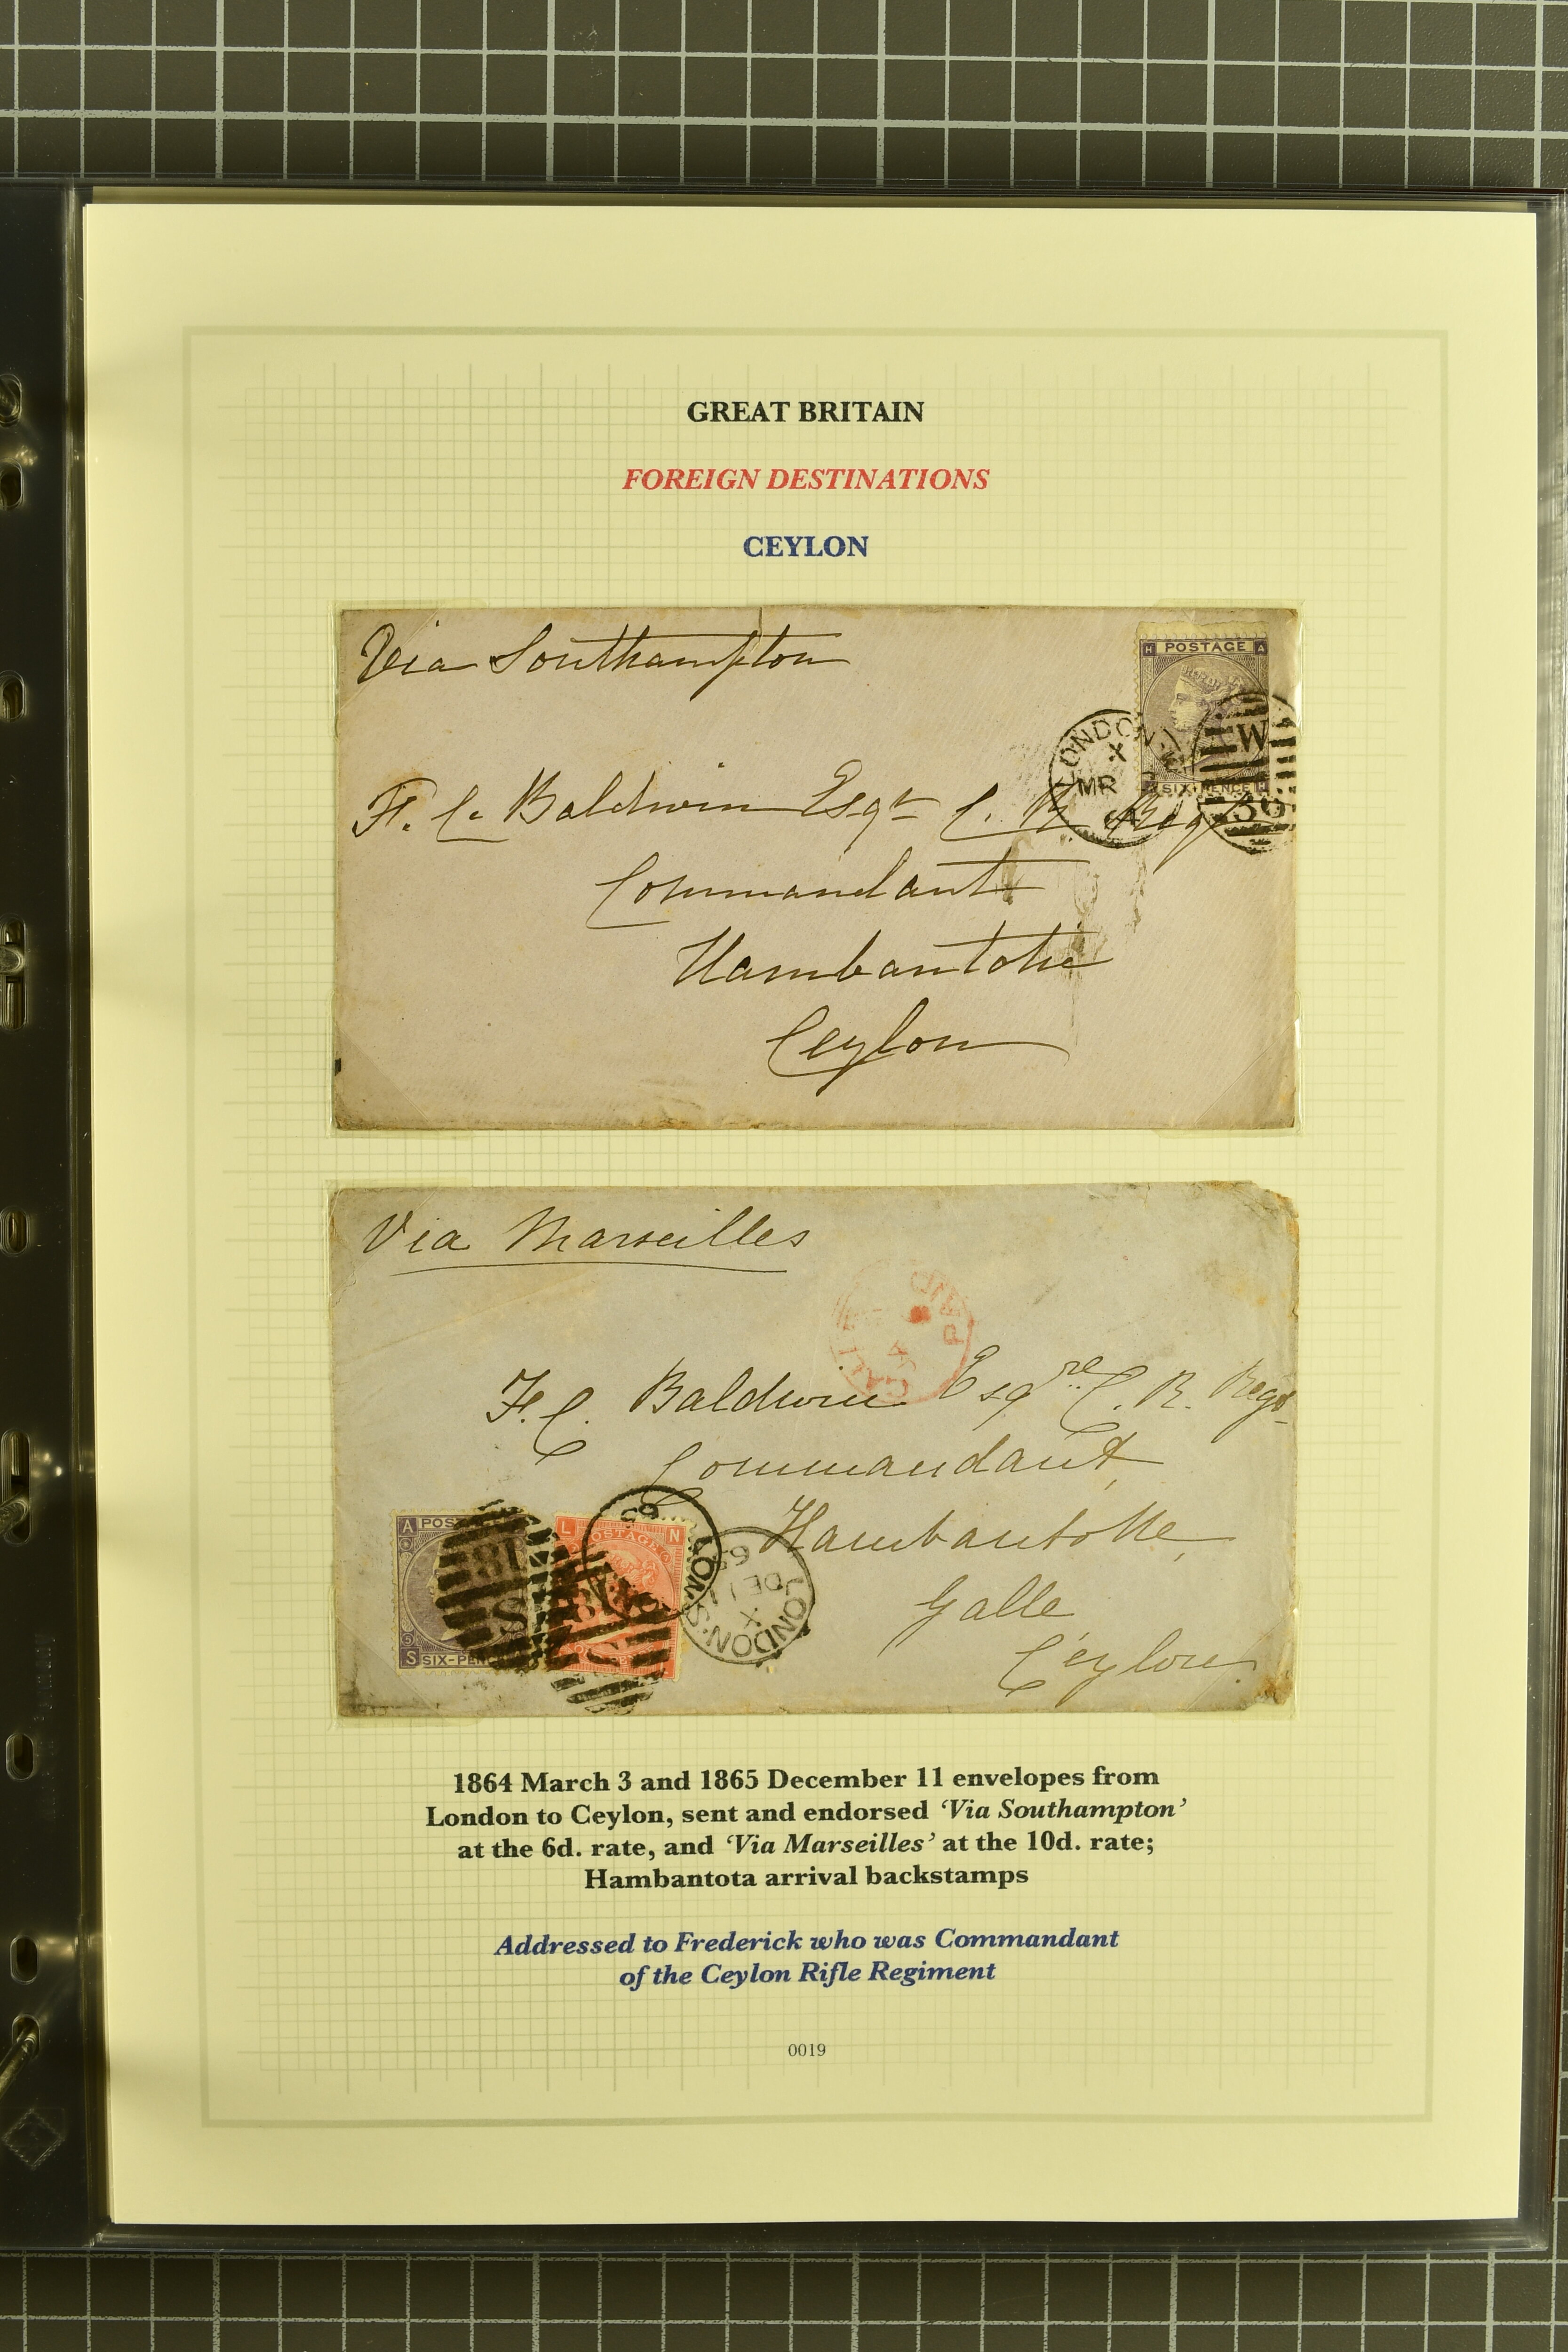 GREAT BRITAIN
FOREIGN DESTINATIONS
CEYLON
Via Southampton
H POSTAGE A
LONDON
X
MR
W
SIX-PENCE
F. C. Baldwin Esqr C. R. Regt
Commandant
Hambantotte
Ceylon
Via Marseilles
PAID
F. C. Baldwin Esqre C. R. Regt
Commandant,
Hambantotte,
Galle
Ceylon.
A
S SIX-PEN
L N
POSTAGE
81
S
65
LONDON.S
LONDON
X
DE
1864 March 3 and 1865 December 11 envelopes from
London to Ceylon, sent and endorsed ‘Via Southampton’
at the 6d. rate, and ‘Via Marseilles’ at the 10d. rate;
Hambantota arrival backstamps
Addressed to Frederick who was Commandant
of the Ceylon Rifle Regiment
0019